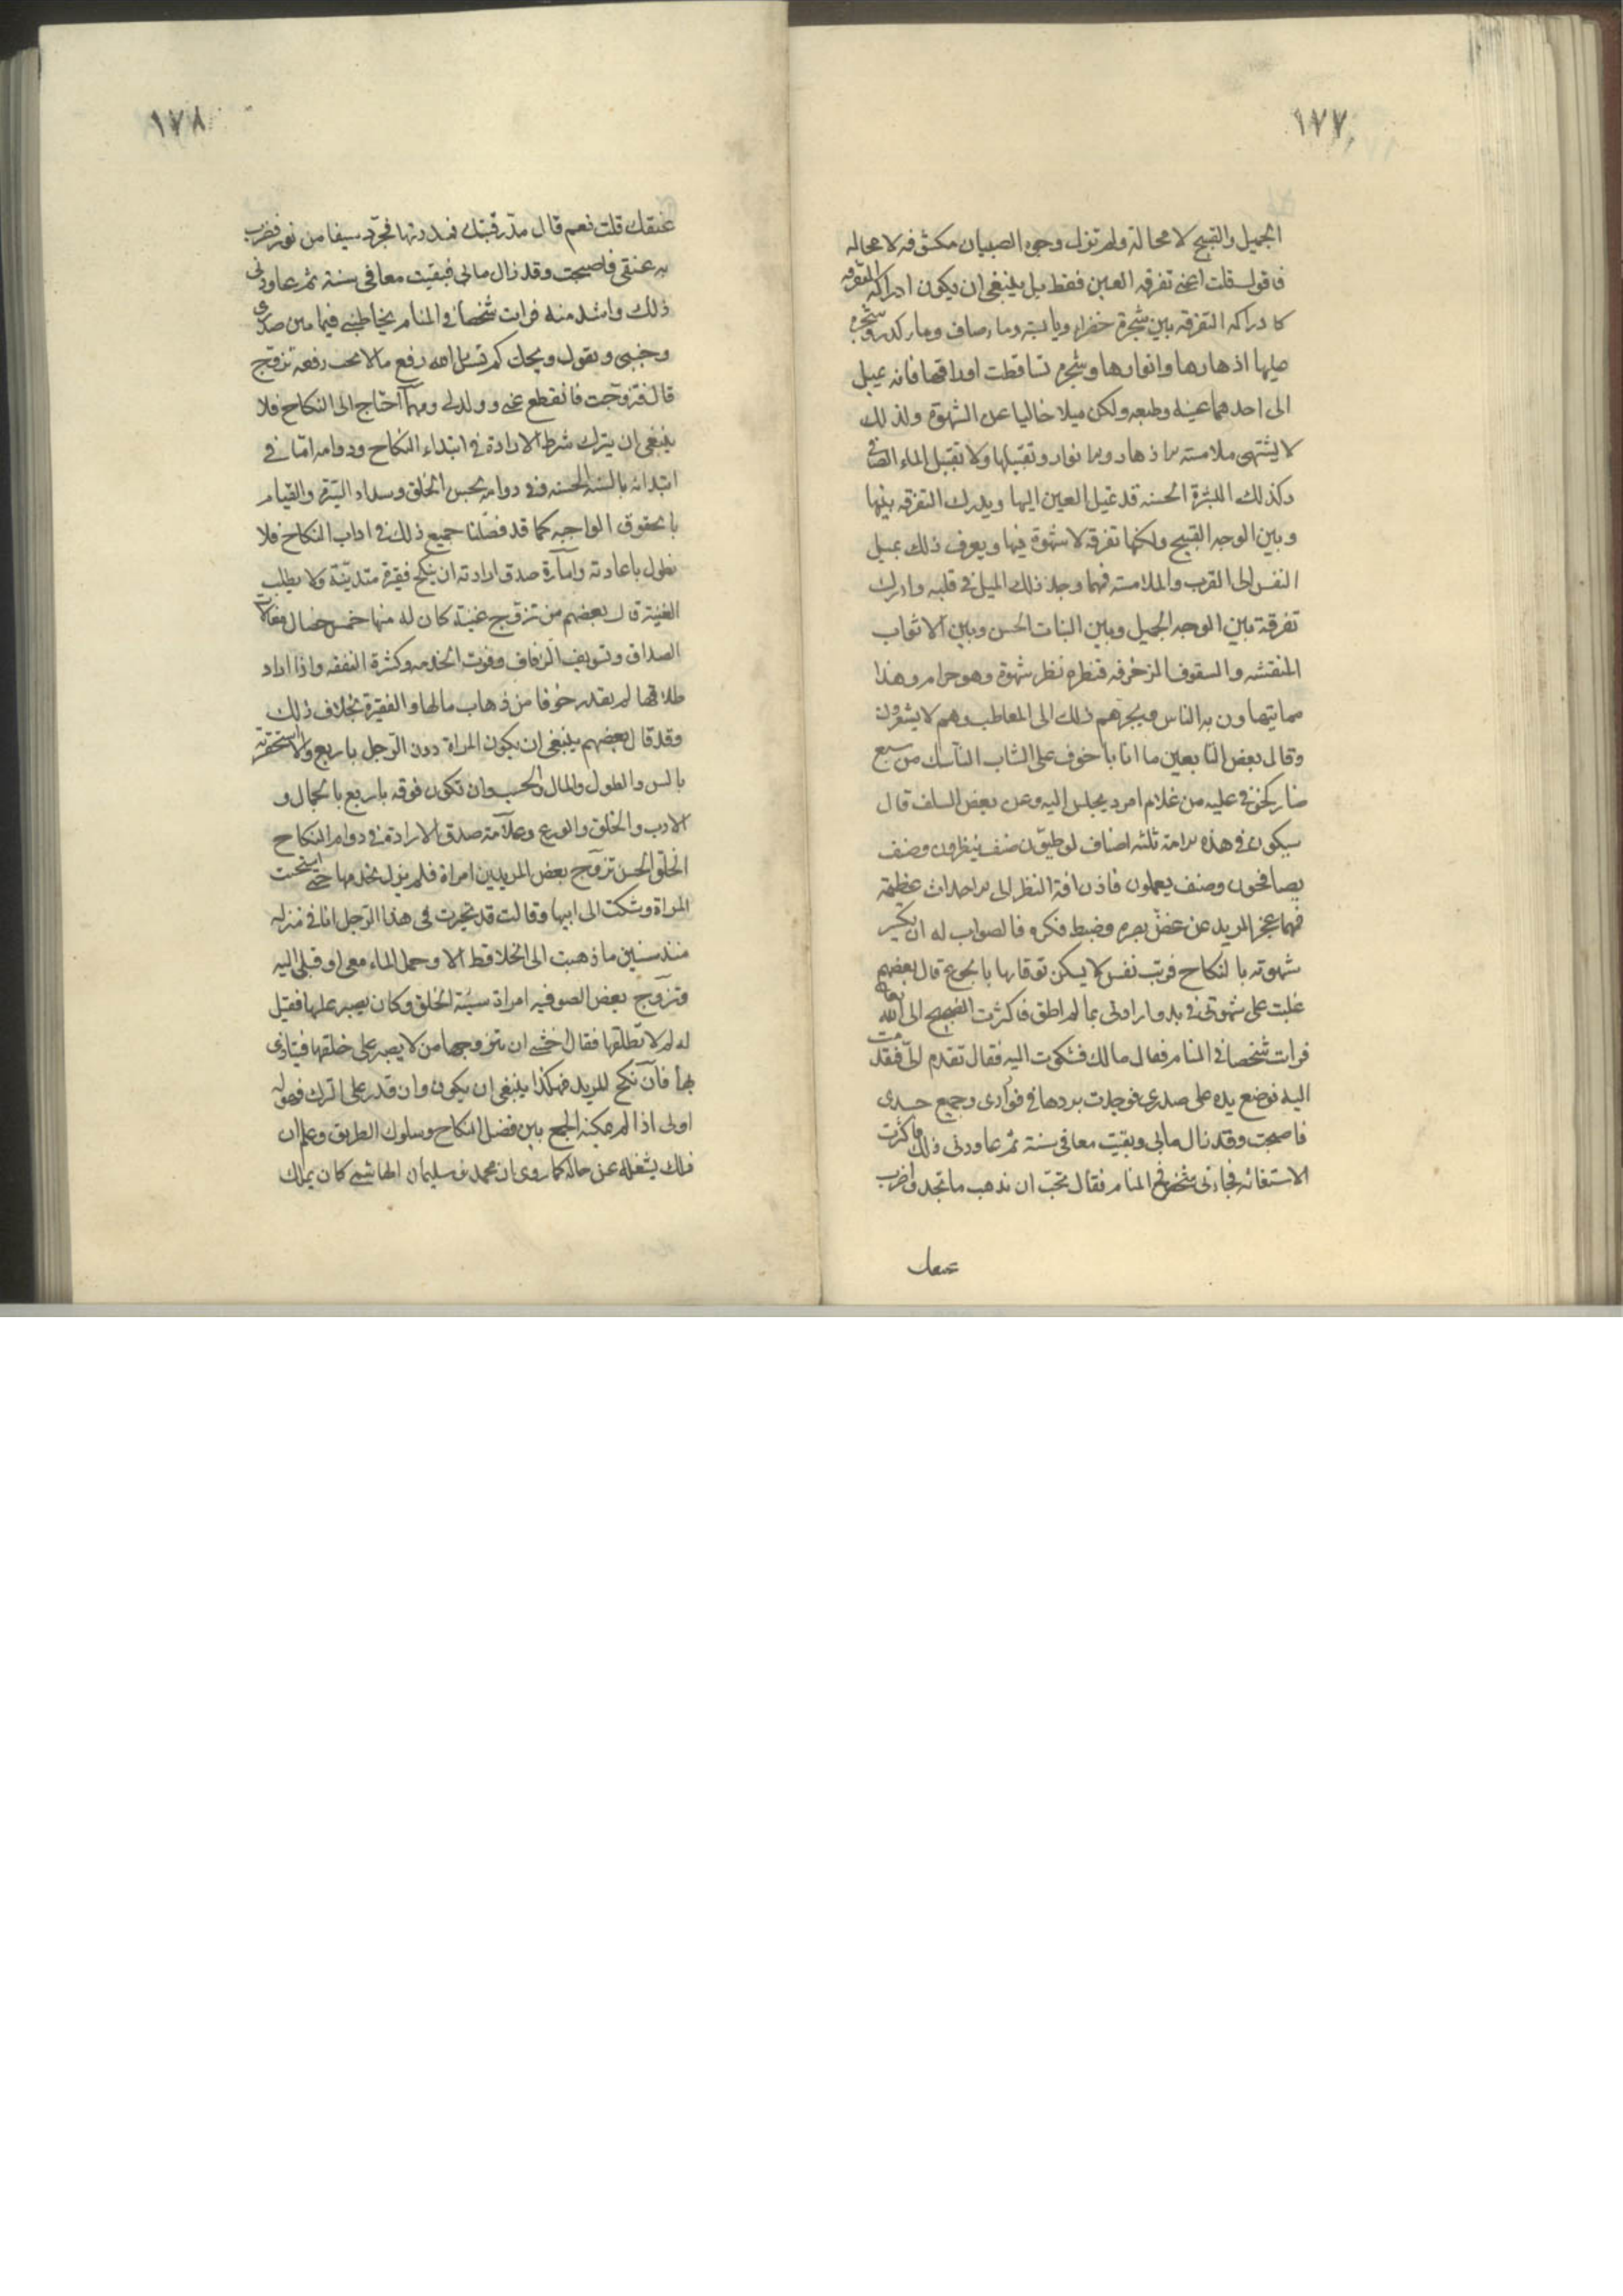 ١٧٧
الجميل والقبيح لا محالة ولم تزل وجوه الصبيان مكشوفه لا محاله
فاقول لست اعنى تفرقه العين فقط بل ينبغى ان يكون ادراكه التفرقه
كادراكه التفرقه بين شجرة خضراء ويابسة وماء صاف وماء كدر وشجرة
عليها ازهارها وانوارها وشجرة تساقطت اوراقها فانه يميل
الى احدهما بعينه وطبعه ولكن ميلا خاليا عن الشهوة ولذلك
لا يشتهى ملامسة الازهار والانوار وتقبيلها ولا تقبيل الماء الصافى
وكذلك البشرة الحسنه قد تميل العين اليها ويدرك التفرقه بينها
وبين الوجه القبيح ولكنها تفرقه لا شهوة فيها ويعرف ذلك بميل
النفس الى القرب والملامسة فمهما وجد ذلك الميل فى قلبه وادرك
تفرقة بين الوجه الجميل وبين النبات الحسن وبين الاثواب
المنقشه والسقوف المزخرفه فنظره نظر شهوة وهو حرام وهذا
مما يتهاون به الناس ويجرهم ذلك الى المعاطب وهم لا يشعرون
وقال بعض التابعين ما انا باخوف على الشاب الناسك من سبع
ضار كخوفى عليه من غلام امرد يجلس اليه وعن بعض السلف قال
سيكون فى هذه الامة ثلثه اصناف لوطيون صنف ينظرون وصنف
يصافحون وصنف يعملون فاذن افة النظر الى الاحداث عظيمة
فمهما عجز المريد عن غض بصره وضبط فكره فالصواب له ان يكسر
شهوته بالنكاح فرب نفس لا يسكن توقانها بالجوع قال بعضهم
غلبت على شهوتى فى بدو ارادتى بما لم اطق فاكثرت الضجيج الى الله تعالى
فرات شخصا فى المنام فقال مالك فشكوت اليه فقال تقدم الى فتقدمت
اليه فوضع يده على صدرى فوجدت بردها فى فوادى وجميع جسدى
فاصبحت وقد زال مابى وبقيت معافى سنة ثم عاودنى ذلك فاكثرت
الاستغاثه فجاءنى شخص فى المنام فقال تحب ان يذهب ما تجد واضرب
١٧٨
عنقك قلت نعم قال مد رقبتك فمددتها فجرد سيفا من نور فضرب
به عنقى فاصبحت وقد زال مابى فبقيت معافى سنة ثم عاودنى
ذلك واشد منه فرات شخصا فى المنام يخاطبنى فيما بين صدرى
وجنبى ويقول ويحك كم تسل الله رفع ما لا يحب رفعه تزوج
قال فتزوجت فانقطع عنى وولد لى ومهما احتاج الى النكاح فلا
ينبغى ان يترك شرط الارادة فى ابتداء النكاح ودوامه اما فى
ابتدائه بالنيه الحسنه وفى دوامه بحسن الخلق وسداد السيرة والقيام
بالحقوق الواجبه كما قد فصلنا جميع ذلك فى اداب النكاح فلا
نطول باعادته وامارة صدق ارادته ان ينكح فقيرة متدينة ولا يطلب
الغنية قال بعضهم من تزوج غنية كان له منها خمس خصال مغالاة
الصداق وتسويف الزفاف وفوت الخدمه وكثرة النفقه واذا اراد
طلاقها لم يقدر خوفا من ذهاب مالها والفقيرة بخلاف ذلك
وقد قال بعضهم ينبغى ان يكون المراة دون الرجل باربع والا استحقرته
بالسن والطول والمال والحسب وان تكون فوقه باربع بالجمال و
الادب والخلق والورع وعلامة صدق الارادة فى دوام النكاح
الخلق الحسن تزوج بعض المريدين امراة فلم يزل يخدمها حتى استحيت
المراة وشكت الى ابيها وقالت قد تحيرت فى هذا الرجل انا فى منزله
منذ سنين ما ذهبت الى الخلا قط الا وحمل الماء معى او قبلى اليه
وتزوج بعض الصوفيه امراة سيئة الخلق وكان يصبر عليها فقيل
له لم لا تطلقها فقال خشى ان يتزوجها من لا يصبر على خلقها فيتاذى
بها فان نكح المريد فهكذا ينبغى ان يكون وان قدر على الترك فهو له
اولى اذا لم يمكنه الجمع بين فضل النكاح وسلوك الطريق وعلم ان
ذلك يشغله عن حاله كما روى ان محمد بن سليمان الهاشمى كان يملك